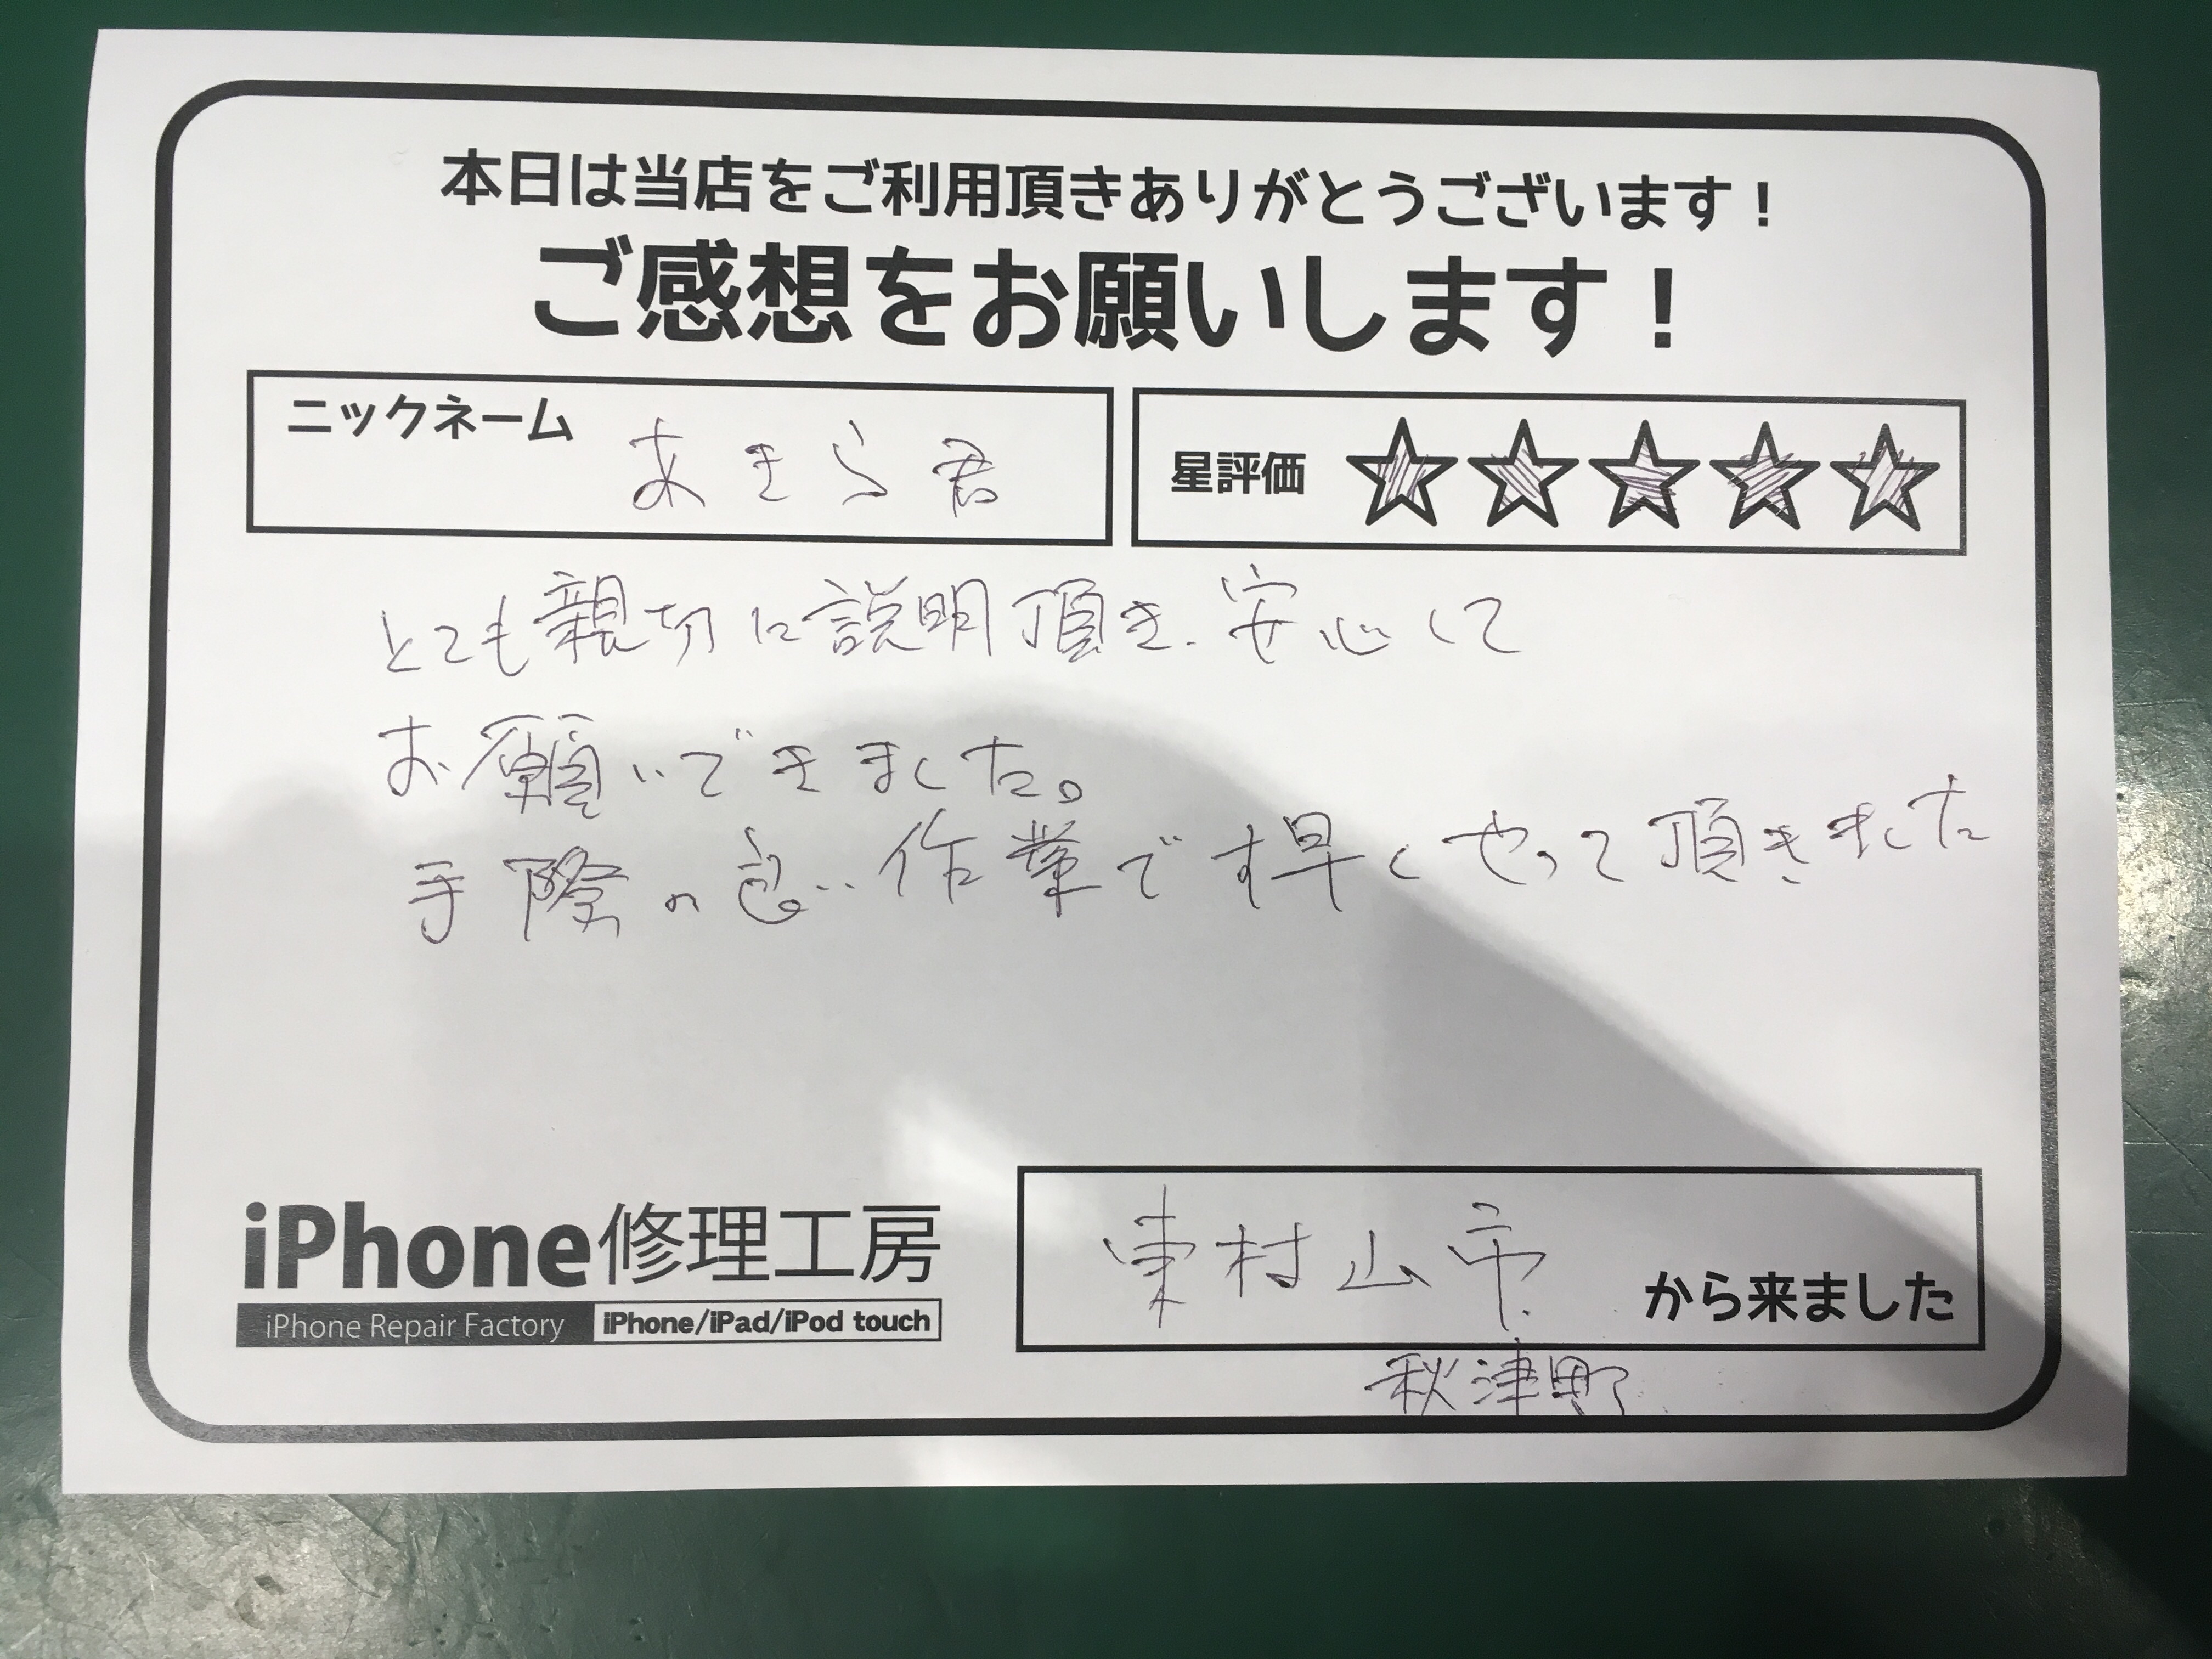 本日は当店をご利用頂きありがとうございます！
ご感想をお願いします！
ニックネーム あきら君
星評価 ☆☆☆☆☆
とても親切に説明頂き、安心して
お願いできました。
手際の良い作業ですj早くやって頂きました
iPhone修理工房
iPhone Repair Factory iPhone/iPad/iPod touch
東村山市 から来ました
秋津町